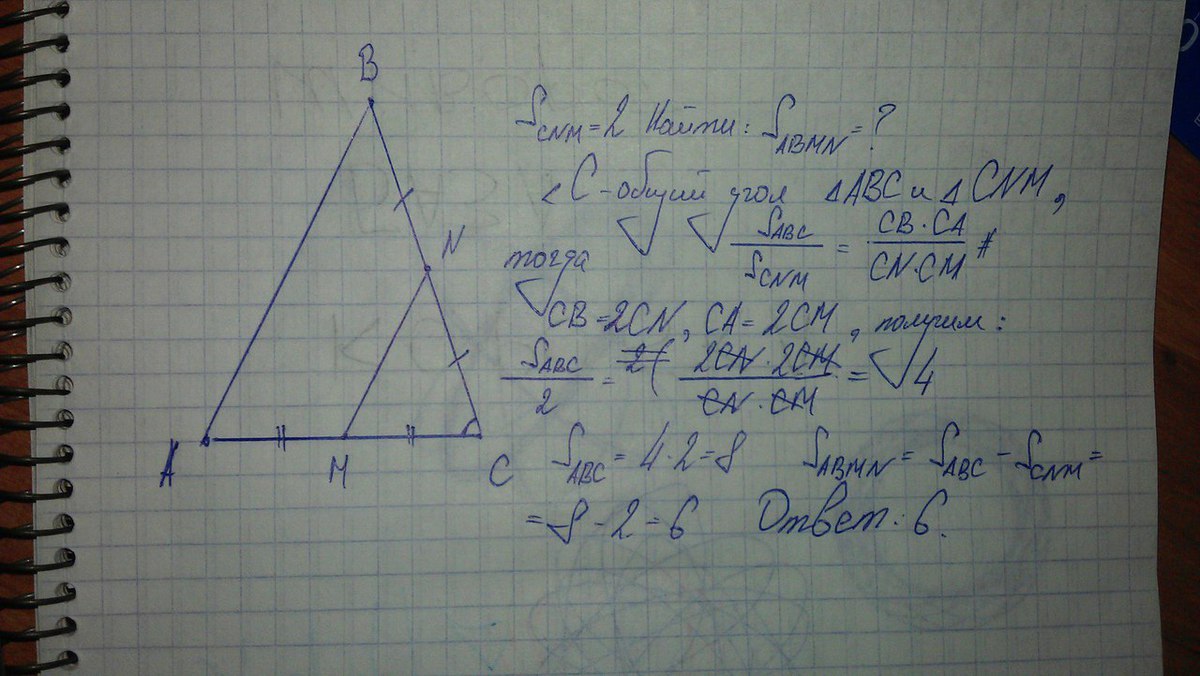 B
N
A
M
C
S_CNM = 2 Найти: S_ABMN = ?
∠C - общий угол ΔABC и ΔCNM,
тогда S_ABC / S_CNM = CB · CA / CN · CM
CB = 2CN, CA = 2CM, получим:
S_ABC / 2 = 2CN · 2CM / CN · CM = 4
S_ABC = 4 · 2 = 8 S_ABMN = S_ABC - S_CNM =
= 8 - 2 = 6 Ответ: 6.